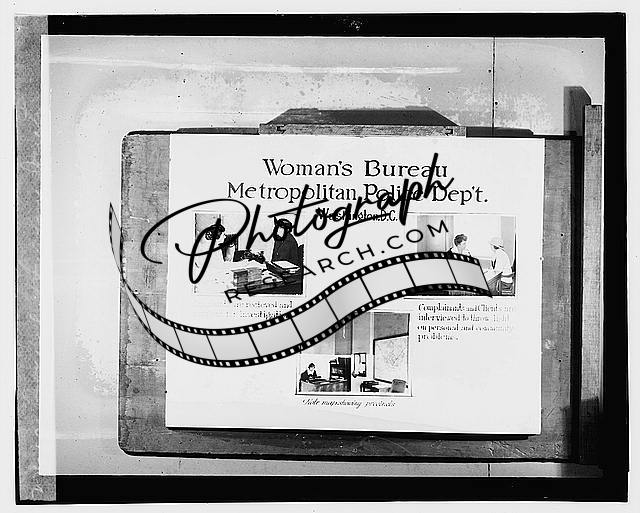 Woman's Bureau
Metropolitan Police Dep't.
Washington, D.C.
Photograph
RESEARCH.COM
recieved and
investigation
Complainants and Clients are
interviewed to throw light
on personal and community
problems.
Note map showing precincts